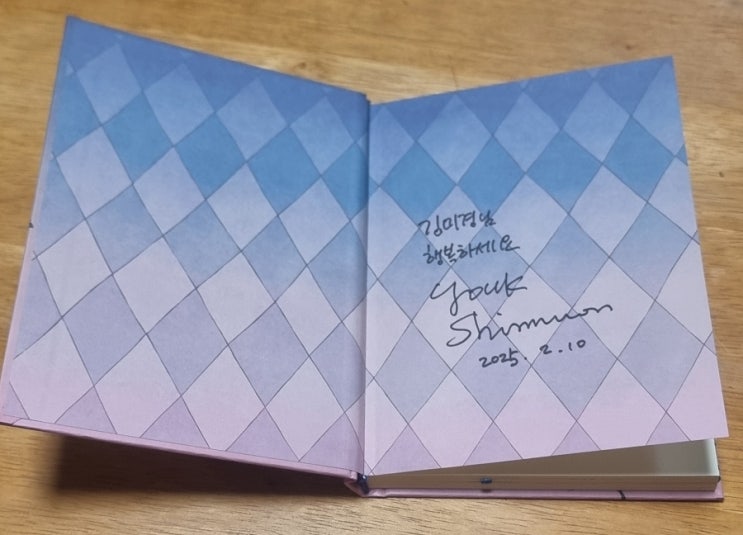 김미경님
행복하세요
Youk
Shinmuon
2025. 2. 10